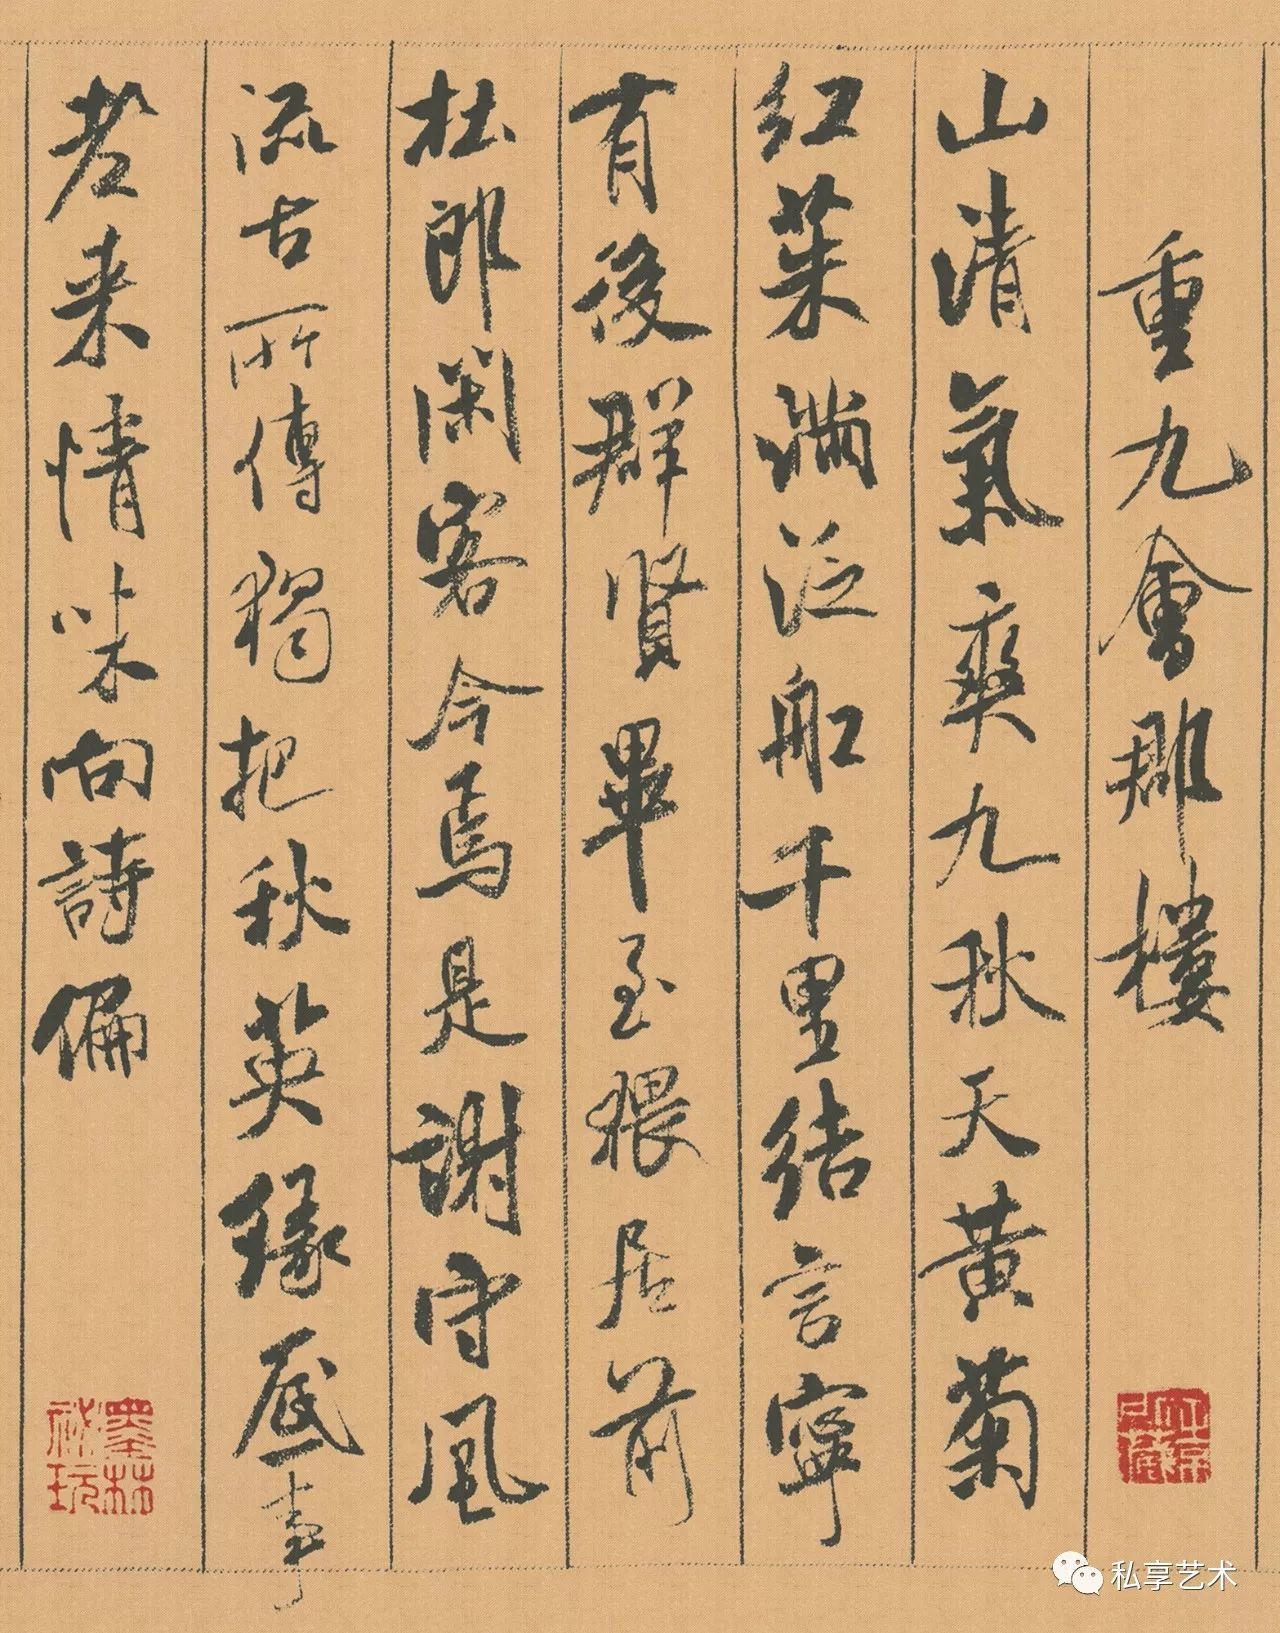 重九會郡樓
山清氣爽九秋天黄菊
紅茱滿泛船千里結言寧
有後群賢畢至猥居前
杜郎閑客今焉是謝守風
流古所傳獨把秋英緣底事
老来情味向詩偏
墨林
祕玩
私享艺术